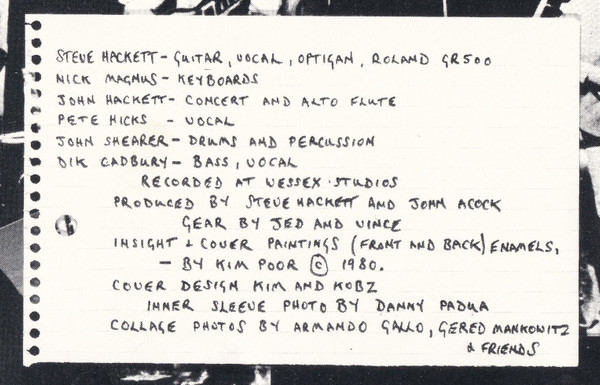 STEVE HACKETT - GUITAR, VOCAL, OPTIGAN, ROLAND GR500
NICK MAGNUS - KEYBOARDS
JOHN HACKETT - CONCERT AND ALTO FLUTE
PETE HICKS - VOCAL
JOHN SHEARER - DRUMS AND PERCUSSION
DIK CADBURY - BASS, VOCAL
RECORDED AT WESSEX STUDIOS
PRODUCED BY STEVE HACKETT AND JOHN ACOCK
GEAR BY JED AND VINCE
INSIGHT & COVER PAINTINGS (FRONT AND BACK) ENAMELS,
- BY KIM POOR © 1980.
COVER DESIGN KIM AND KOBZ
INNER SLEEVE PHOTO BY DANNY PADUA
COLLAGE PHOTOS BY ARMANDO GALLO, GERED MANKOWITZ
& FRIENDS